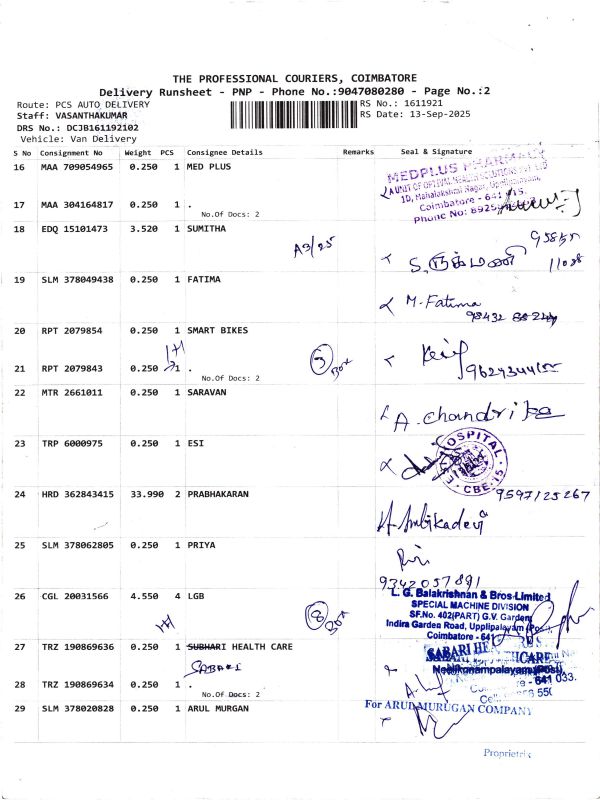 THE PROFESSIONAL COURIERS, COIMBATORE
Delivery Runsheet - PNP - Phone No.:9047080280 - Page No.:2
Route: PCS AUTO DELIVERY RS No.: 1611921
Staff: VASANTHAKUMAR RS Date: 13-Sep-2025
DRS No.: DCJB161192102
Vehicle: Van Delivery
S No Consignment No Weight PCS Consignee Details Remarks Seal & Signature
16 MAA 709054965 0.250 1 MED PLUS
MEDPLUS PHARMACY
1D, Mahalakshmi Nagar, Uppilipalayam,
Coimbatore - 641 015.
17 MAA 304164817 0.250 1 .
No.Of Docs: 2
18 EDQ 15101473 3.520 1 SUMITHA
A3/25
19 SLM 378049438 0.250 1 FATIMA
M. Fatima
20 RPT 2079854 0.250 1 SMART BIKES
21 RPT 2079843 0.250 1 .
No.Of Docs: 2
22 MTR 2661011 0.250 1 SARAVAN
A. chandrika
23 TRP 6000975 0.250 1 ESI
HOSPITAL
CBE-15
24 HRD 362843415 33.990 2 PRABHAKARAN
9597125267
A Ambikadevi
25 SLM 378062805 0.250 1 PRIYA
9342057891
26 CGL 20031566 4.550 4 LGB
L. G. Balakrishnan & Bros Limited
SPECIAL MACHINE DIVISION
SF.No. 402(PART) G.V. Garden
Indira Garden Road, Upplipalayam (Post),
Coimbatore - 641
27 TRZ 190869636 0.250 1 SUBHARI HEALTH CARE
SABARI
SABARI HEALTHCARE
28 TRZ 190869634 0.250 1 .
No.Of Docs: 2
29 SLM 378020828 0.250 1 ARUL MURGAN
For ARUL MURUGAN COMPANY
Proprietrix